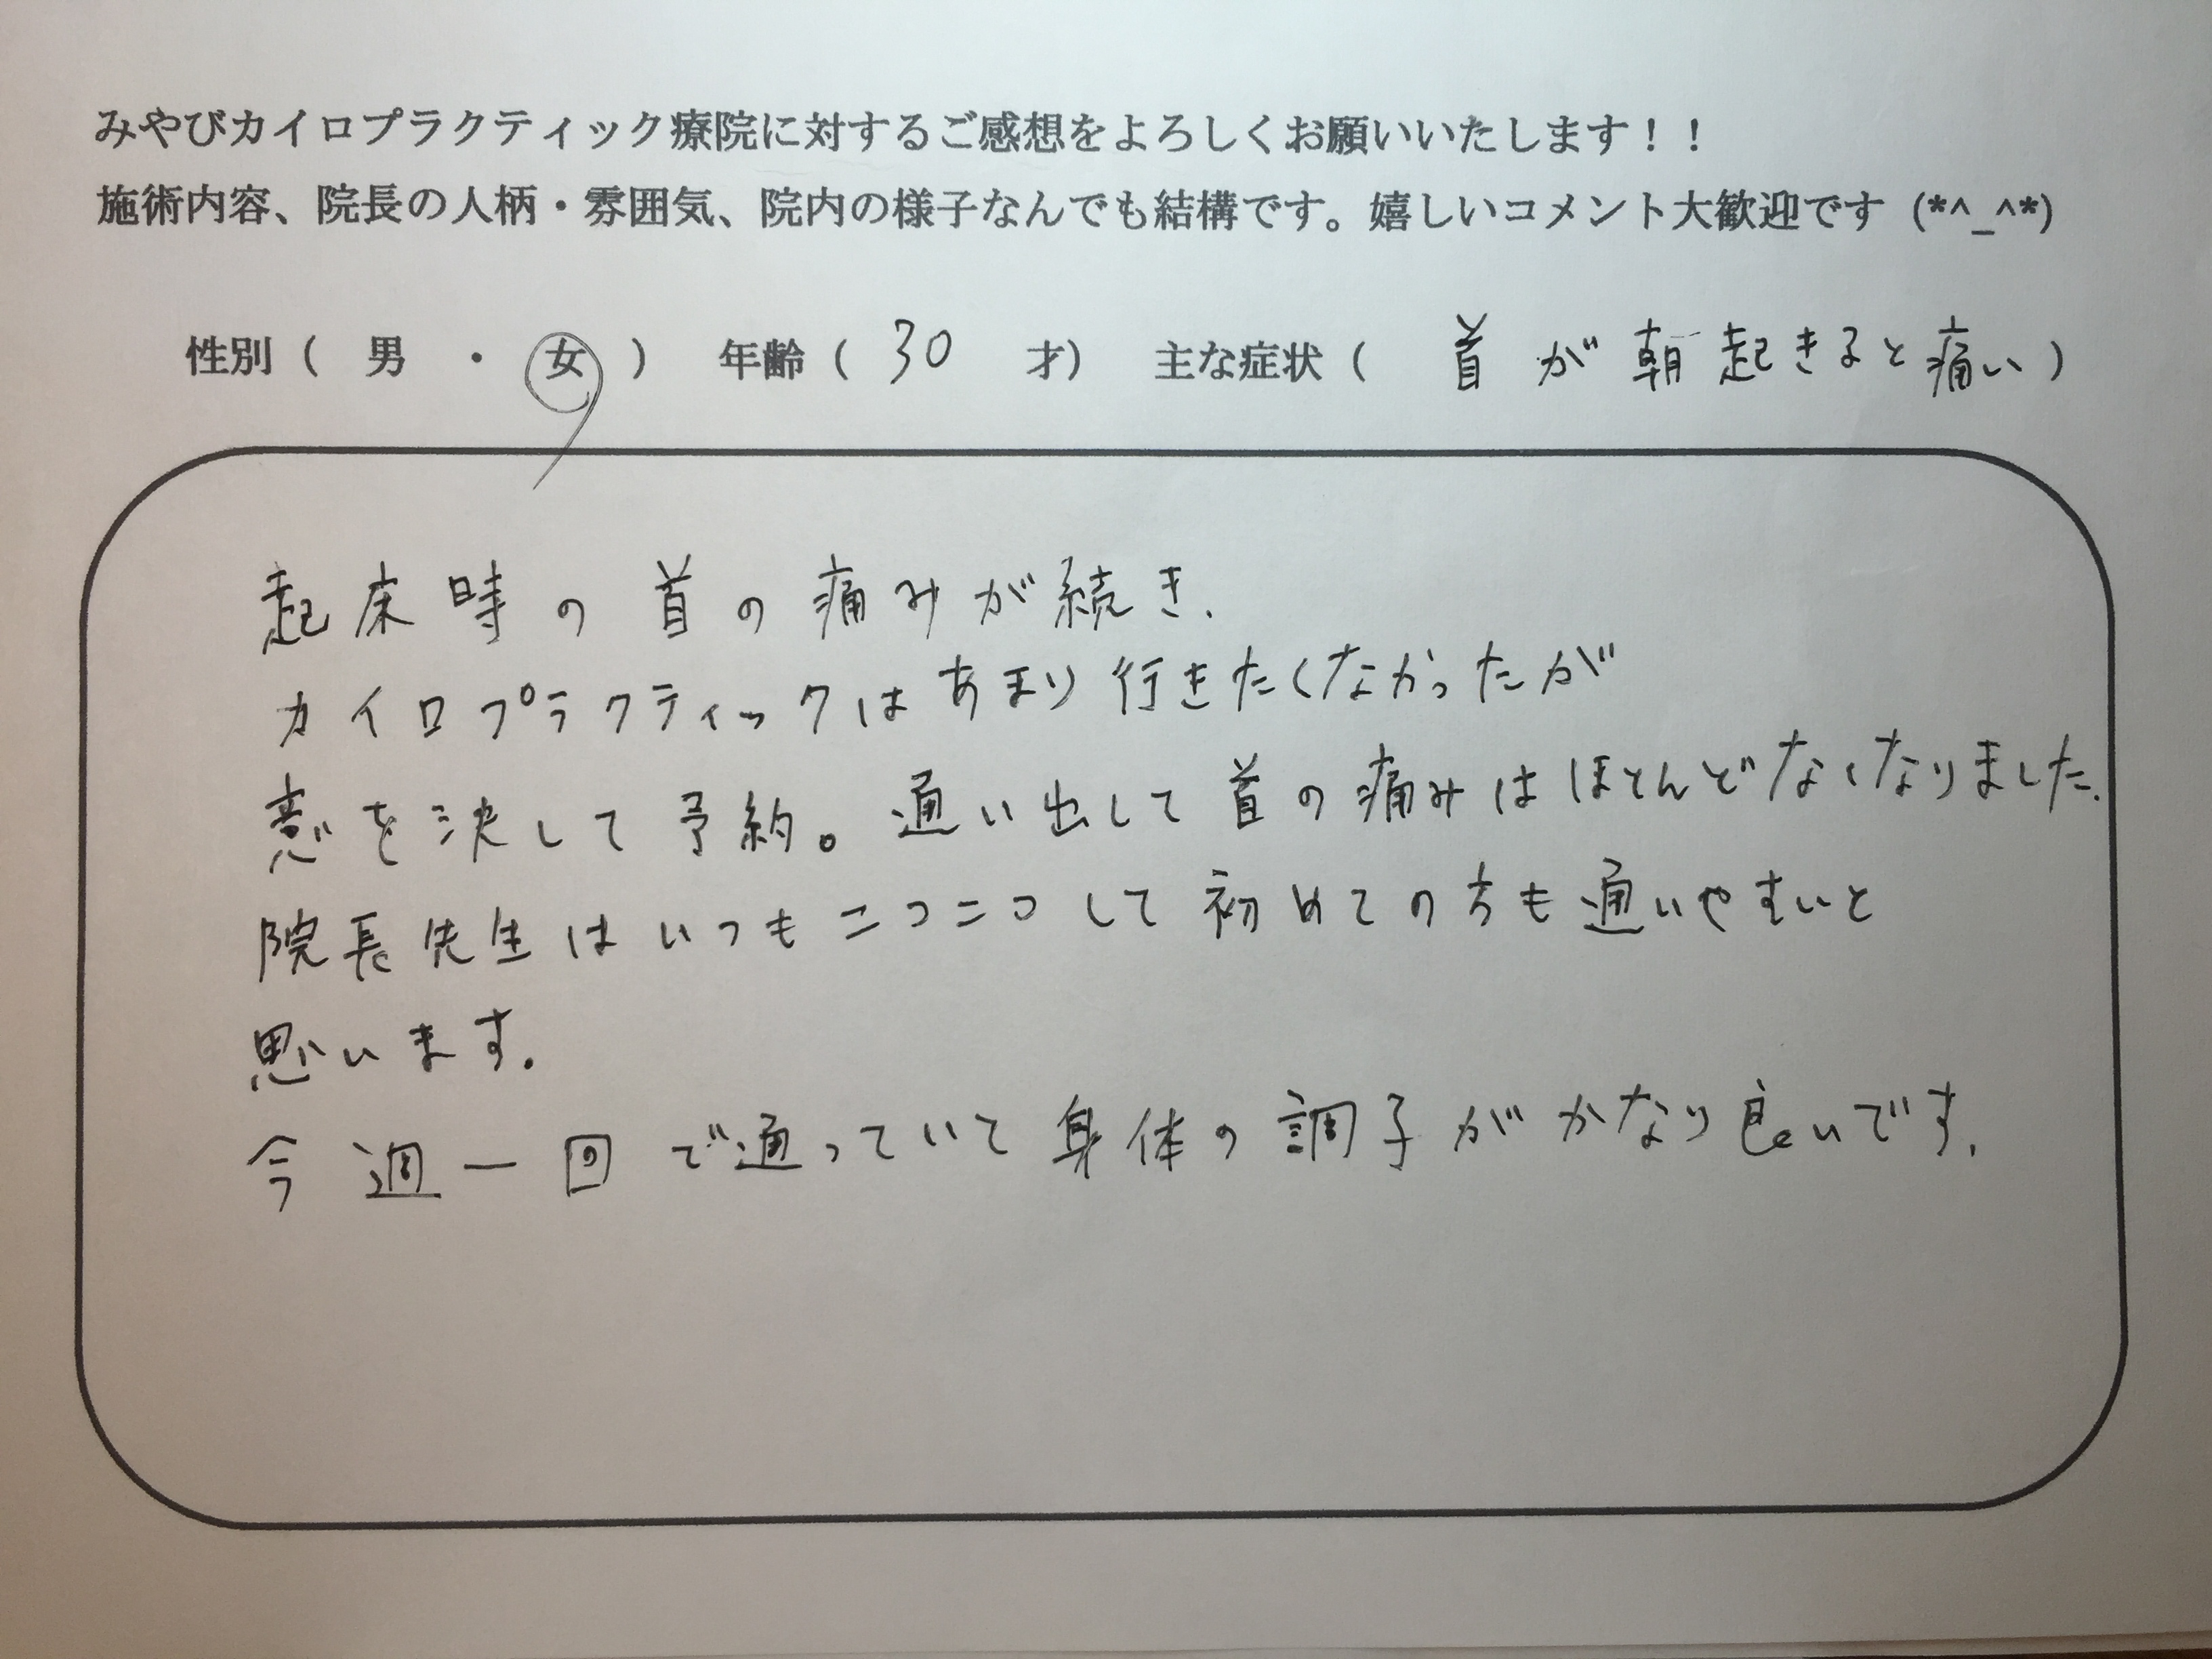 みやびカイロプラクティック療院に対するご感想をよろしくお願いいたします！！
施術内容、院長の人柄・雰囲気、院内の様子なんでも結構です。嬉しいコメント大歓迎です (*^_^*)
性別（ 男 ・ 女 ） 年齢（ 30 才） 主な症状（ 首が朝起きると痛い）
起床時の首の痛みが続き、
カイロプラクティックはあまり行きたくなかったが
意を決して予約。通い出して首の痛みはほとんどなくなりました。
院長先生はいつもニコニコして初めての方も通いやすいと
思います。
今週一回で通っていて身体の調子がかなり良いです。